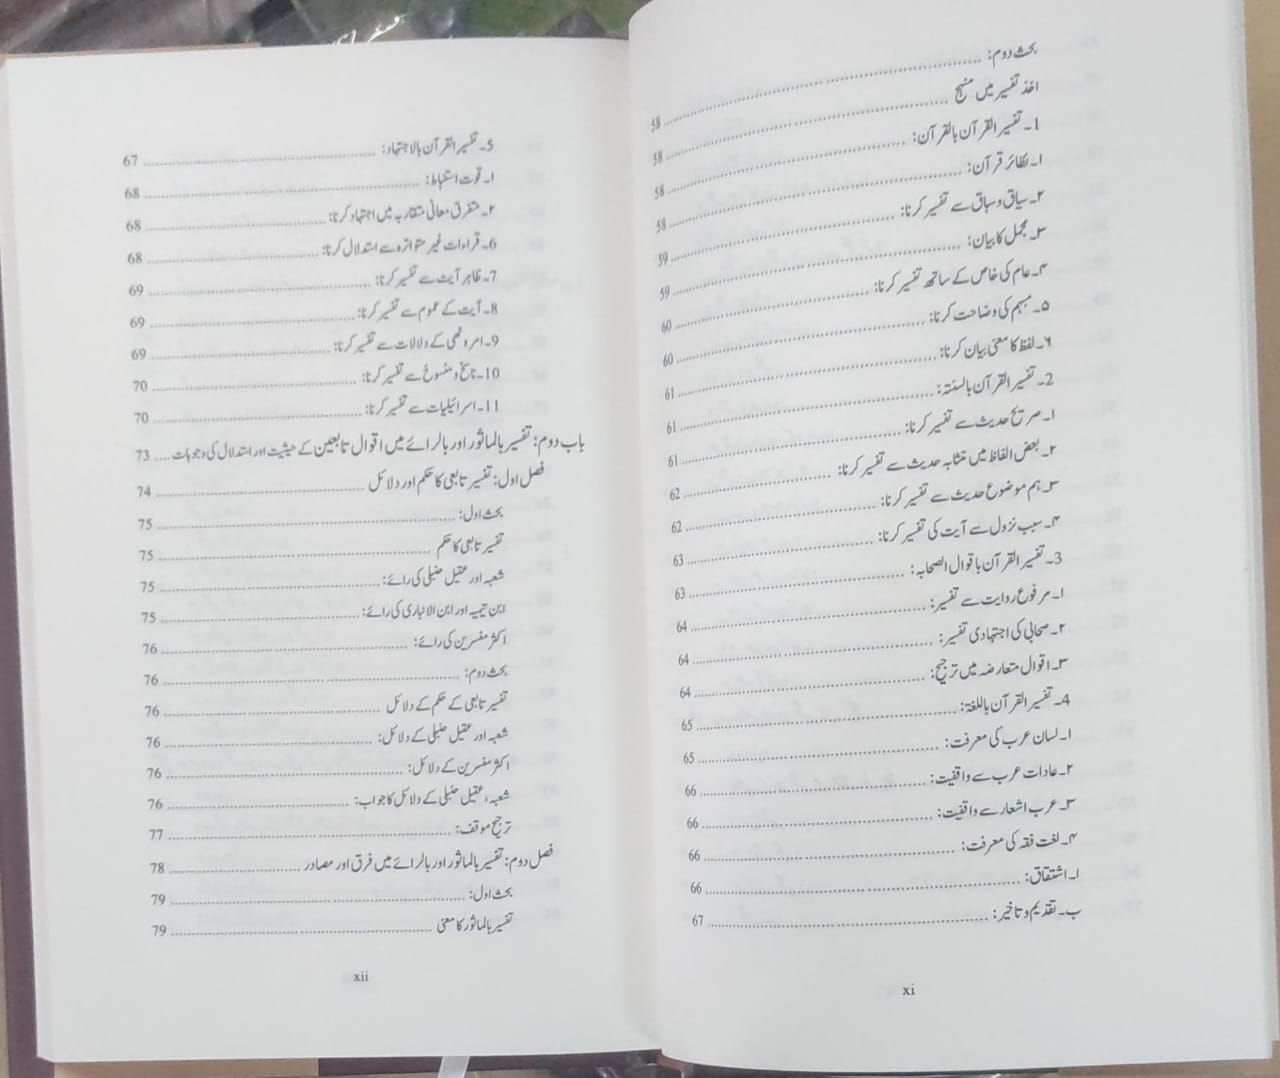 بحث دوم: 58
اخذ تفسیر میں منہج 58
1۔ تفسیر القرآن بالقرآن: 58
۱۔ نظائر قرآن: 58
۲۔ سیاق و سباق سے تفسیر کرنا: 59
۳۔ مجمل کا بیان: 59
۴۔ عام کی خاص کے ساتھ تفسیر کرنا: 60
۵۔ مبہم کی وضاحت کرنا: 60
۶۔ لفظ کا معنی بیان کرنا: 61
2۔ تفسیر القرآن بالسنۃ: 61
۱۔ صریح حدیث سے تفسیر کرنا: 61
۲۔ بعض الفاظ میں متشابہ حدیث سے تفسیر کرنا: 62
۳۔ ہم موضوع حدیث سے تفسیر کرنا: 62
۴۔ سبب نزول سے آیت کی تفسیر کرنا: 63
3۔ تفسیر القرآن باقوال الصحابہ: 63
۱۔ مرفوع روایت سے تفسیر: 64
۲۔ صحابی کی اجتہادی تفسیر: 64
۳۔ اقوال متعارضہ میں ترجیح: 64
4۔ تفسیر القرآن باللغۃ: 65
۱۔ لسان عرب کی معرفت: 65
۲۔ عادات عرب سے واقفیت: 66
۳۔ عرب اشعار سے واقفیت: 66
۴۔ لغت فقہ کی معرفت: 66
ا۔ اشتقاق: 66
ب۔ تقدیم و تاخیر: 67
xi
5۔ تفسیر القرآن بالاجتہاد: 67
۱۔ قوت استنباط: 68
۲۔ متفرق معانی متقاربہ میں اجتہاد کرنا: 68
6۔ قراءات غیر متواترہ سے استدلال کرنا: 68
7۔ ظاہر آیت سے تفسیر کرنا: 69
8۔ آیت کے عموم سے تفسیر کرنا: 69
9۔ امر و نہی کے دلالات سے تفسیر کرنا: 69
10۔ ناسخ و منسوخ سے تفسیر کرنا: 70
11۔ اسرائیلیات سے تفسیر کرنا: 70
باب دوم: تفسیر بالماثور اور بالرائے میں اقوال تابعین کے حیثیت اور استدلال کی وجوہات 73
فصل اول: تفسیر تابعی کا حکم اور دلائل 74
بحث اول: 75
تفسیر تابعی کا حکم 75
شعبہ اور عقیل حنبلی کی رائے: 75
ابن تیمیہ اور ابن الانباری کی رائے: 75
اکثر مفسرین کی رائے: 76
بحث دوم: 76
تفسیر تابعی کے حکم کے دلائل 76
شعبہ اور عقیل حنبلی کے دلائل: 76
اکثر مفسرین کے دلائل: 76
شعبہ، عقیل حنبلی کے دلائل کا جواب: 76
ترجیح موقف: 77
فصل دوم: تفسیر بالماثور اور بالرائے میں فرق اور مصادر 78
بحث اول: 79
تفسیر بالماثور کا معنی 79
xii